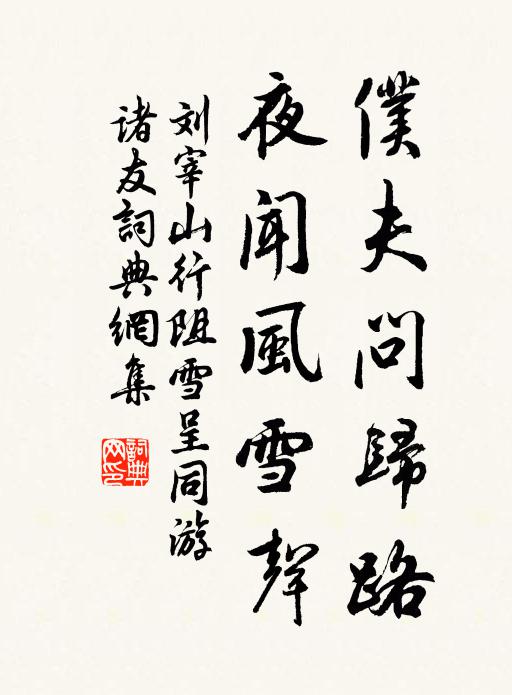 僕夫問歸路
夜聞風雪聲
刘宰山行阻雪呈同游
诸友詞典網集
詞典网印